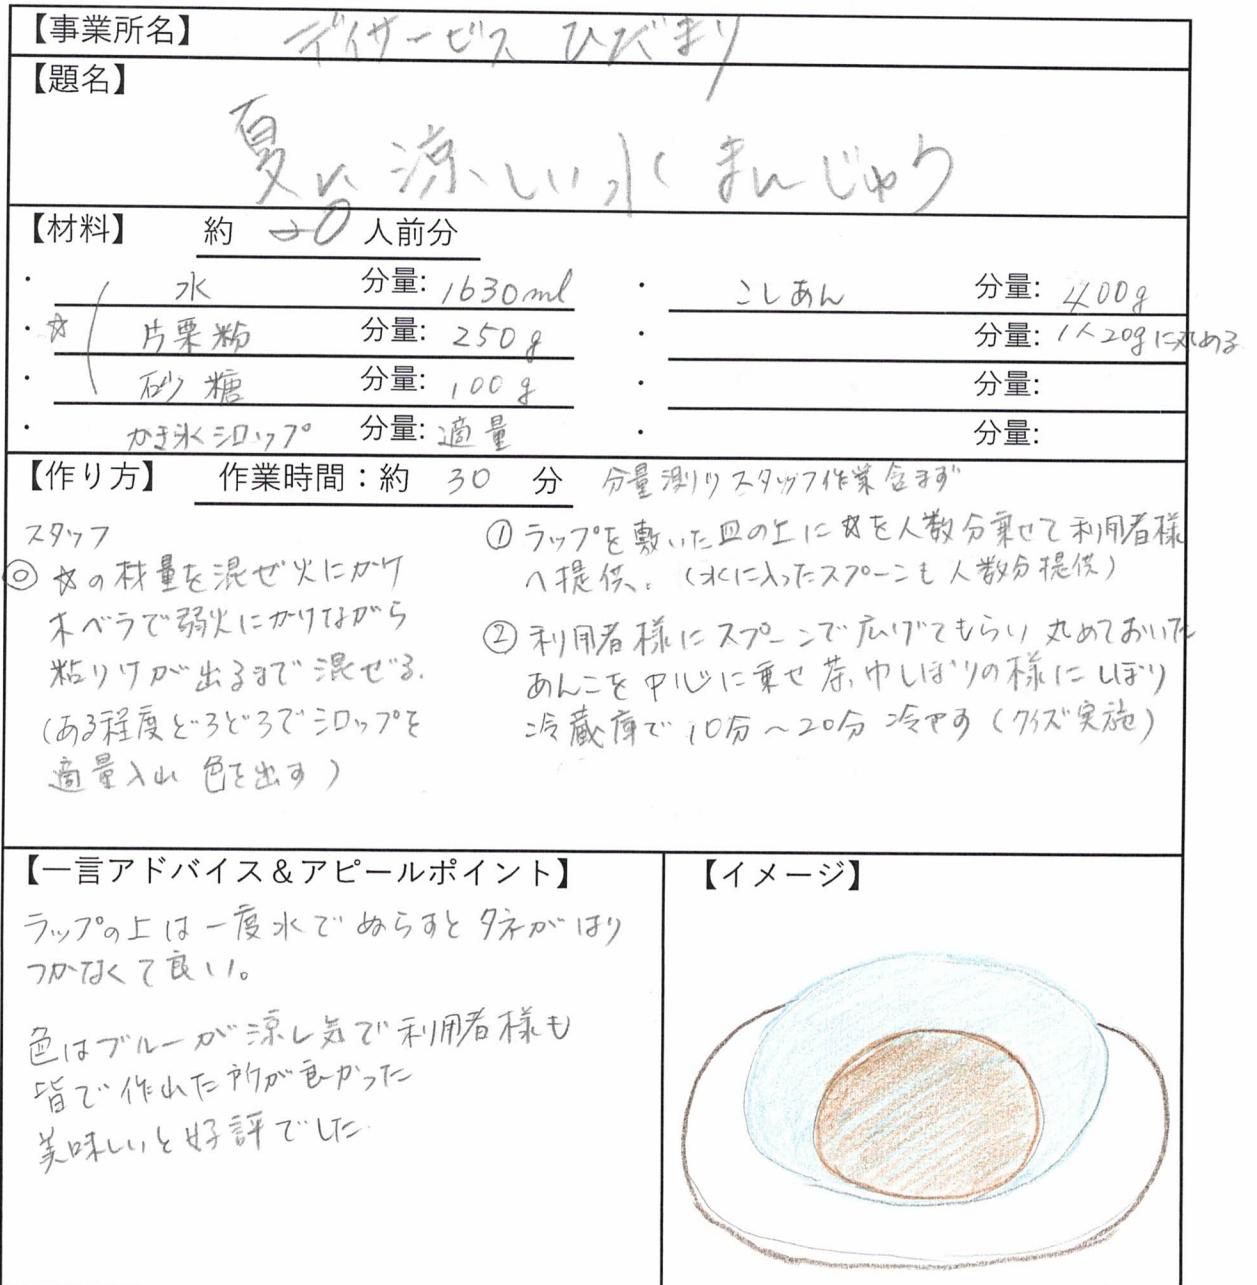 【事業所名】 デイサービス ひだまり
【題名】
夏に涼しい水まんじゅう
【材料】 約 20 人前分
・ 水 分量: 1630ml ・ こしあん 分量: 400g
・☆ 片栗粉 分量: 250g ・ 分量: 1人20gに丸める
・ 砂糖 分量: 100g ・ 分量:
・ かき氷シロップ 分量: 適量 ・ 分量:
【作り方】 作業時間:約 30 分 分量測りスタッフ作業含まず
スタッフ
◎ ☆の材量を混ぜ火にかけ
木ベラで弱火にかけながら
粘りけが出るまで混ぜる.
(ある程度どろどろでシロップを
適量入れ 色を出す)
① ラップを敷いた皿の上に☆を人数分乗せて利用者様
へ提供。(水に入ったスプーンも人数分提供)
② 利用者様にスプーンで広げてもらい 丸めておいた
あんこを中心に乗せ 茶巾しぼりの様にしぼり
冷蔵庫で10分~20分 冷やす(クイズ実施)
【一言アドバイス&アピールポイント】
ラップの上は一度水でぬらすとタネがはり
つかなくて良い。
色はブルーが涼し気で利用者様も
皆で作れた所が良かった
美味しいと好評でした.
【イメージ】